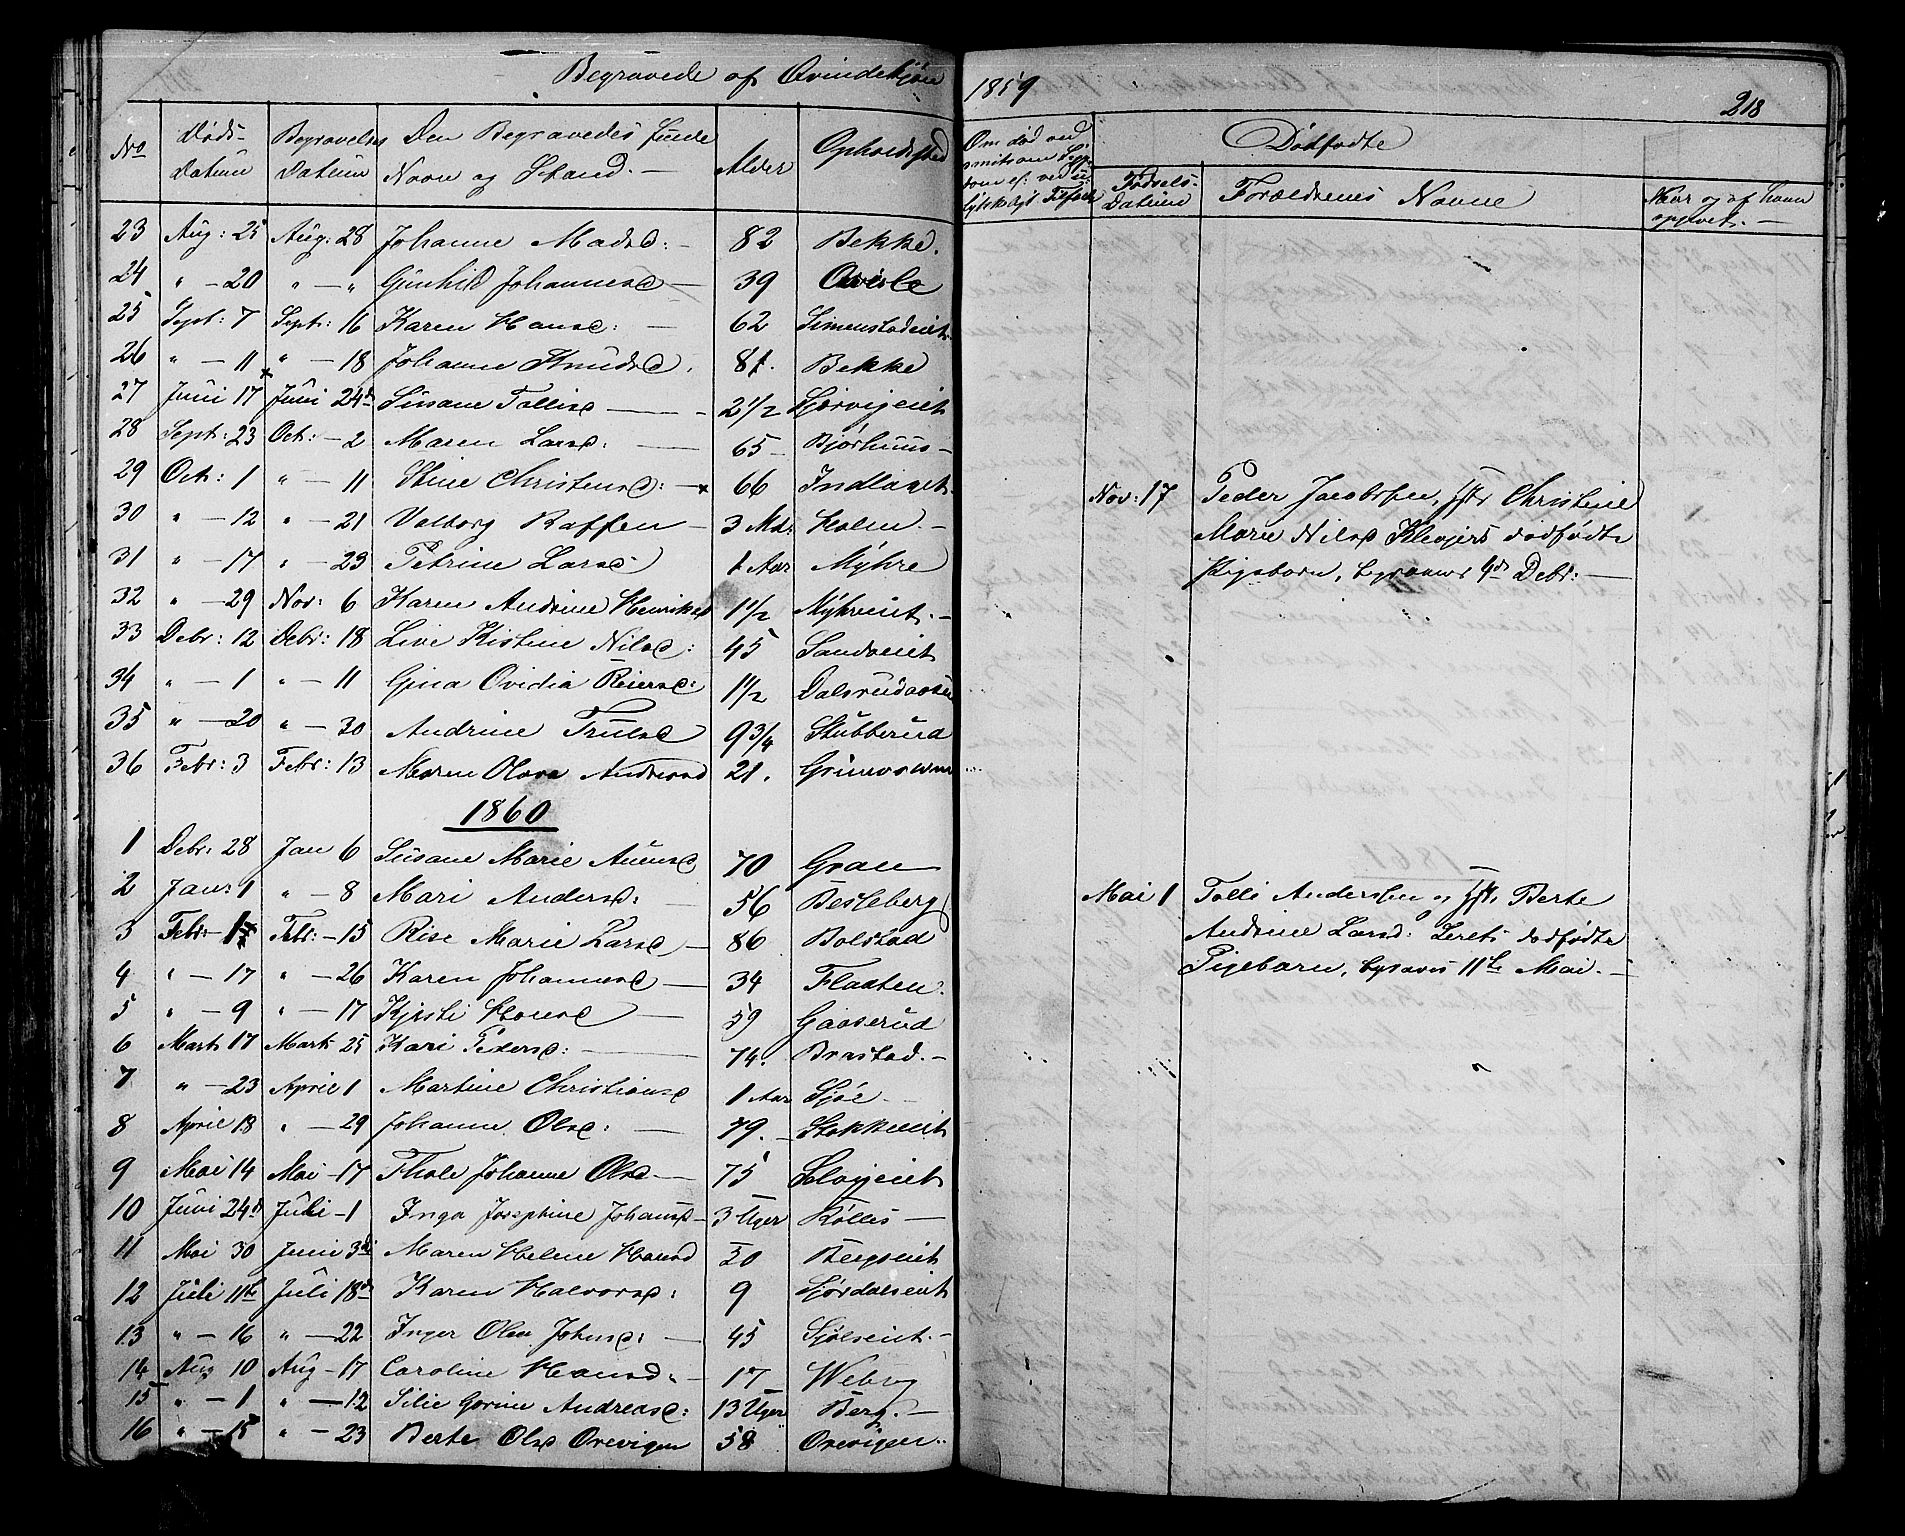 Begravede af Qvindekjøn 1859
218
No Døds-Datum Begravelses Datum Den Begravedes fulde Navn og Stand. Alder Opholdsted
Om død ved
Dødfødte
Fødsels-Datum Forældrenes Navne
Naar og af hvem
opgivet.
23 Aug: 25 Aug: 28 Johanne Madsd: 82 Bekke.
24 " - 20 " - " Gunhild Johannesd 39
25 Sept: 7 Sept: 16 Karen Hansd: 62 Simenstadeiet
26 " - 11 " - 18 Johanne Knudsd. 81. Bekke
27 Juni 17 Juni 24d Susane Tollisd 2 1/2
28 Sept: 23 Oct: - 2 Maren Larsd: 65 - Bjørhuus -
29 Oct: 1 " - 11 Stine Christensd: 66
30 " - 12 " - 21 Valborg Raffen 3 Mdr: Holm. -
31 " - 17 " - 23 Petrine Larsd 1 Aar Myhre
32 " - 29 Nov: 6 Karen Andrine Henriksd 1 1/2 Myhreeiet. -
33 Debr: 12 Debr: 18 Live Kistine Nilsd: 45 Sandveiet
34 " - 1 " - 11 Gina Ovidia Reiersd: 1 1/2
35 " - 20 " - 30 Andrine Trulsd 9 3/4 Stubberud
36 Febr: 3 Febr: 13 Maren Olava Andreasd 21.
Nov: 17 Peder Jacobsen, Hstr Christine
Marie Nilsd Klevjers dødfødte
Pigebarn, begraves 4de Debr: -
1860
1 Debr: 28 Jan 6 Susane Marie Auensd 70 Gran
2 Jan: 1 " - 8 Mari Andersd: 56 Besleberg
3 Febr- Febr: - 15 Rise Marie Larsd - 86 Bolstad
4 " - 17 " - 26 Karen Johannesd 34 Flaaten.
5 " - 9 " - 17 Kjersti Hansd 59 Gaaserud
6 Marts 17 Marts 25 Kari Pedersd: 74. Brastad. -
7 " - 23 April 1 Martine Christiansd 1 Aar Sjøe -
8 April 18 " - 29 Johanne Olsd: 79. - Stokkeeiet
9 Mai 14 Mai - 17 Thale Johanne Olsd 75
10 Juni 24d Juli - 1 Inga Josephine Johansd - 3 Uger
11 Mai 30 Juni 3die Maren Helene Hansd 20 Bergseiet
12 Juli 11te Juli 18de Karen Halvorsd: 9 Sørdalseiet
13 " - 16 " - 22 Inger Olea Johnsd: 45
14 Aug 10 Aug - 17 Caroline Hansd. 17
15 " - 1 " - 12 Silie Gorine Andreasd: 13 Uger Berg. -
16 " - 15 " - 23 Berte Olsd Orevigen 58 Orevigen.
Mai 1 Tolli Andersen og Hstr Berte
Andrine Larsd: dødfødte
Pigebarn, begraves 11te Mai. -